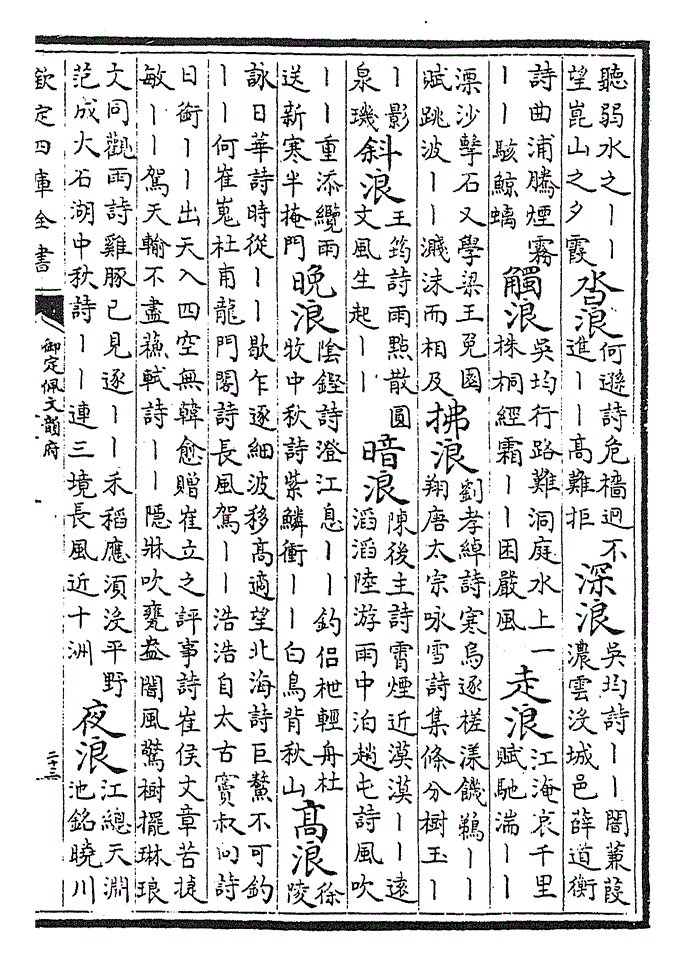 聽弱水之丨丨
望崑山之夕霞
沓浪
何遜詩危檣迥不
進丨丨高難拒
深浪
吳均詩丨丨闇蒹葭
濃雲沒城邑薛道衡
詩曲浦騰煙霧
丨丨駭鯨螭
觸浪
吳均行路難洞庭水上一
株桐經霜丨丨困嚴風
走浪
江淹哀千里
賦馳湍丨丨
漂沙擊石又學梁王兔園
賦跳波丨丨濺沫而相及
拂浪
劉孝綽詩寒烏逐槎漾饑鵜丨丨
翔唐太宗咏雪詩集條分樹玉丨
丨影
泉璣
斜浪
王筠詩雨點散圓
文風生起丨丨
暗浪
陳後主詩霄煙近漠漠丨丨遠
滔滔陸游雨中泊趙屯詩風吹
丨丨重添纜雨
送新寒半掩門
晚浪
陰鏗詩澄江息丨丨釣侶枻輕舟杜
牧中秋詩紫鱗衝丨丨白鳥背秋山
高浪
徐
陵
詠日華詩時從丨丨歇乍逐細波移高適望北海詩巨鰲不可釣
丨丨何崔嵬杜甫龍門閣詩長風駕丨丨浩浩自太古竇叔向詩
日銜丨丨出天入四空無韓愈贈崔立之評事詩崔侯文章苦捷
敏丨丨駕天輸不盡蘇軾詩丨丨隠牀吹甕盎闇風驚樹擺琳琅
文同觀雨詩雞豚已見逐丨丨禾稻應須沒平野
范成大石湖中秋詩丨丨連三境長風近十洲
夜浪
江總天淵
池銘曉川
欽定四庫全書
御定佩文韻府
二十三